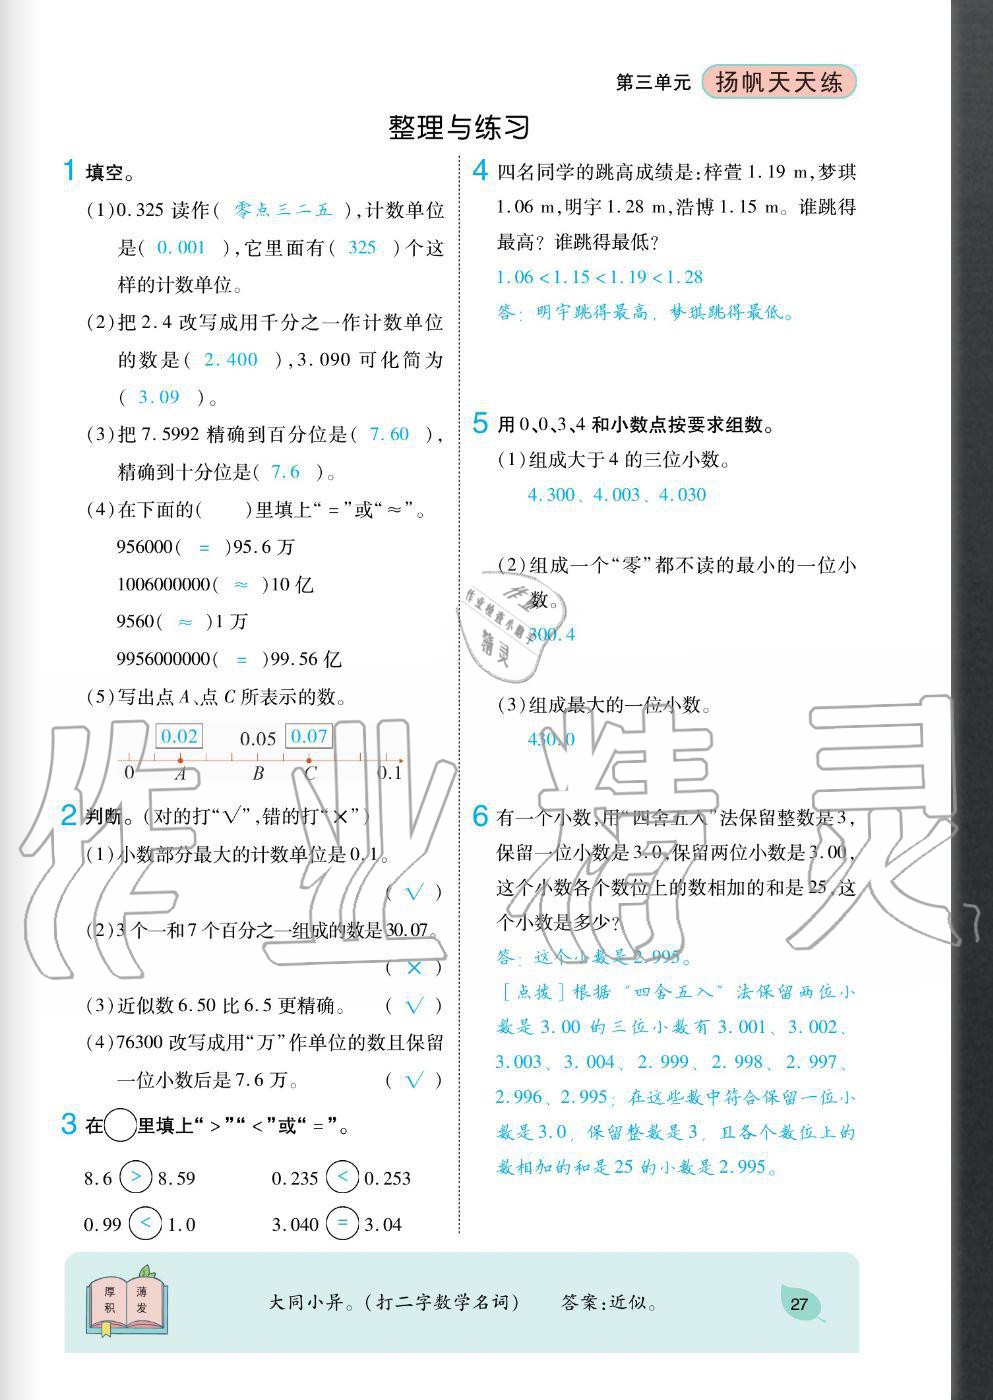 第三单元 扬帆天天练
整理与练习
1 填空。
(1)0.325 读作( 零点三二五 ),计数单位
是( 0.001 ),它里面有( 325 )个这
样的计数单位。
(2)把 2.4 改写成用千分之一作计数单位
的数是( 2.400 ),3.090 可化简为
( 3.09 )。
(3)把 7.5992 精确到百分位是( 7.60 ),
精确到十分位是( 7.6 )。
(4)在下面的( )里填上“=”或“≈”。
956000( = )95.6 万
1006000000( ≈ )10 亿
9560( ≈ )1 万
9956000000( = )99.56 亿
(5)写出点 A、点 C 所表示的数。
0.02 0.05 0.07
0 A B C 0.1
2 判断。(对的打“√”,错的打“×”)
(1)小数部分最大的计数单位是 0.1。
( √ )
(2)3 个一和 7 个百分之一组成的数是 30.07。
( × )
(3)近似数 6.50 比 6.5 更精确。 ( √ )
(4)76300 改写成用“万”作单位的数且保留
一位小数后是 7.6 万。 ( √ )
3 在○里填上“>”“<”或“=”。
8.6 > 8.59 0.235 < 0.253
0.99 < 1.0 3.040 = 3.04
4 四名同学的跳高成绩是:梓萱 1.19 m,梦琪
1.06 m,明宇 1.28 m,浩博 1.15 m。谁跳得
最高? 谁跳得最低?
1.06<1.15<1.19<1.28
答:明宇跳得最高,梦琪跳得最低。
5 用 0、0、3、4 和小数点按要求组数。
(1)组成大于 4 的三位小数。
4.300、4.003、4.030
(2)组成一个“零”都不读的最小的一位小
数。
300.4
(3)组成最大的一位小数。
430.0
6 有一个小数,用“四舍五入”法保留整数是 3,
保留一位小数是 3.0,保留两位小数是 3.00,
这个小数各个数位上的数相加的和是 25,这
个小数是多少?
答:这个小数是 2.995。
[点拨]根据“四舍五入”法保留两位小
数是 3.00 的三位小数有 3.001、3.002、
3.003、3.004、2.999、2.998、2.997、
2.996、2.995;在这些数中符合保留一位小
数是 3.0,保留整数是 3,且各个数位上的
数相加的和是 25 的小数是 2.995。
作业精灵
作业
作业检查小助手
精灵
厚积 薄发
大同小异。(打二字数学名词) 答案:近似。
27